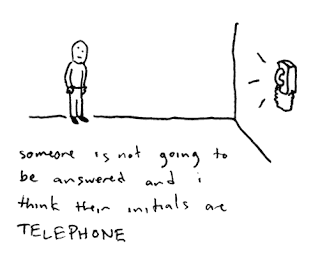 someone is not going to
be answered and i
think their initials are
TELEPHONE